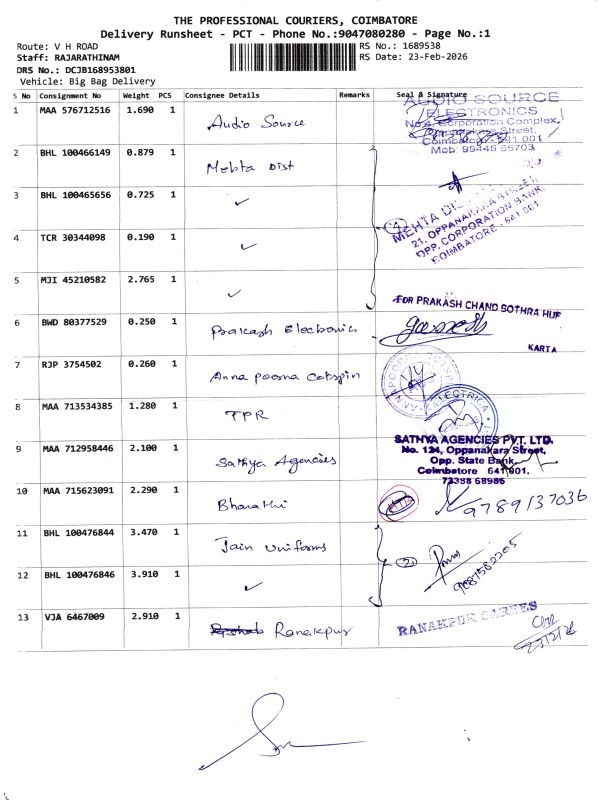 THE PROFESSIONAL COURIERS, COIMBATORE
Delivery Runsheet - PCT - Phone No.:9047080280 - Page No.:1
Route: V H ROAD RS No.: 1689538
Staff: RAJARATHINAM RS Date: 23-Feb-2026
DRS No.: DCJB168953801
Vehicle: Big Bag Delivery
S No Consignment No Weight PCS Consignee Details Remarks Seal & Signature
1 MAA 576712516 1.690 1 Audio Source
AUDIO SOURCE
ELECTRONICS
No.4, Corporation Complex,
Oppanakara Street,
Coimbatore - 641 001
Mob: 99445 66703
2 BHL 100466149 0.879 1 Mehta Dist
3 BHL 100465656 0.725 1 ✓
4 TCR 30344098 0.190 1 ✓
5 MJI 45210582 2.765 1 ✓
4
MEHTA
21, OPPANAKARA STREET
OPP. CORPORATION BANK,
COIMBATORE - 641 001
6 BWD 80377529 0.250 1 Prakash Electronics
FOR PRAKASH CHAND BOTHRA HUF
KARTA
7 RJP 3754502 0.260 1 Anna Poorna Cotspin
8 MAA 713534385 1.280 1 TPR
9 MAA 712958446 2.100 1 Sathya Agencies
SATHYA AGENCIES PVT. LTD.
No. 124, Oppanakara Street,
Opp. State Bank,
Coimbatore 641 001.
73388 68986
10 MAA 715623091 2.290 1 Bharathi
9789137036
11 BHL 100476844 3.470 1 Jain Uniforms
12 BHL 100476846 3.910 1 ✓
2
13 VJA 6467009 2.910 1 Ranakpur
RANAKPUR SAREES
23/2/26